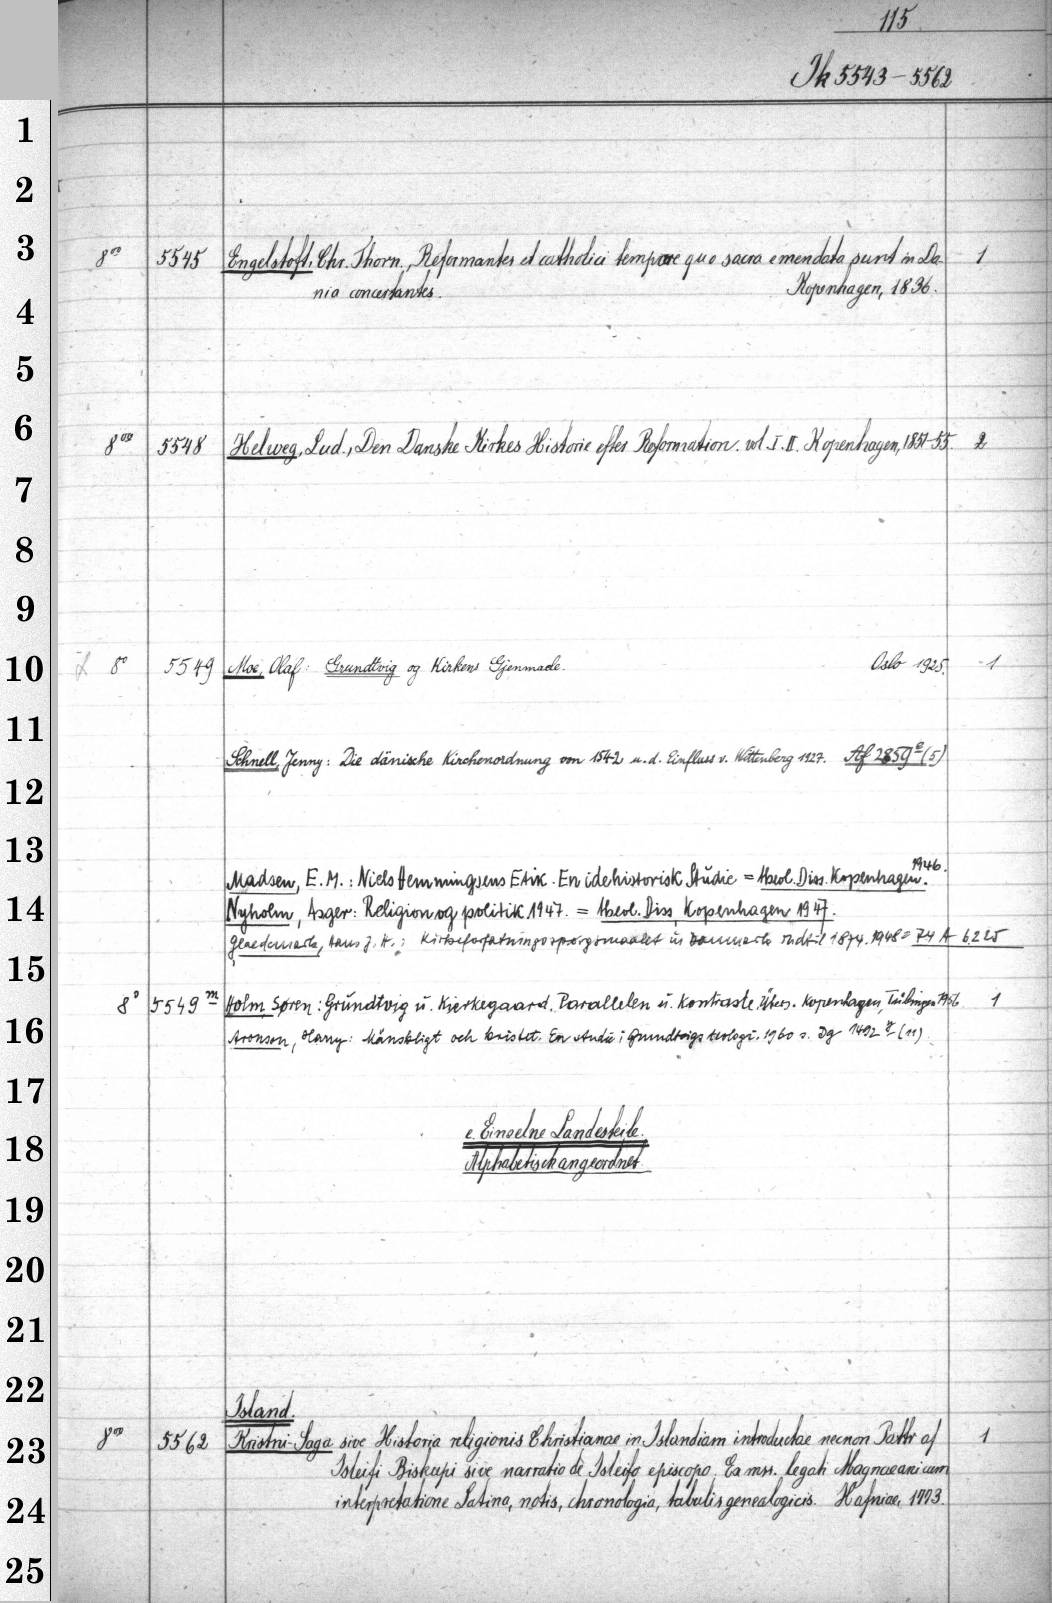 115
Ik 5543-5562
1
2
3 8vo 5545 Engelstoft, Chr. Thorn., Reformantes et catholici tempore quo sacra emendata sunt in Da- 1
nia concertantes. Kopenhagen, 1836.
4
5
6 8vo 5548 Helweg, Lud., Den Danske Kirkes Historie efter Reformation. vol. I. II. Kopenhagen, 1851-55. 2
7
8
9
10 8° 5549 Moe, Olaf: Grundtvig og Kirkens Gjenmæle. Oslo 1925. 1
11
Schnell, Jenny: Die dänische Kirchenordnung von 1542 u. d. Einfluss v. Wittenberg 1927. Af 2859 e (5)
12
13
1946.
Madsen, E. M.: Niels Hemmingsens Etik. En idehistorisk Studie = theol. Diss. Kopenhagen.
14 Nyholm, Asger: Religion og politik 1947. = theol. Diss, Kopenhagen 1947.
Glaedemark, Hans J. H.: Kirkeforfatningsspørgsmaalet in Danmark indtil 1874. 1948 = 74 A 6225
15
8° 5549 m Holm, Søren: Grundtvig u. Kierkegaard. Parallelen u. Kontraste. Übers. Kopenhagen, Tübingen 1956 1
16 Aronson, Harry: Mänskligt och kristet. En studie i Grundtvigs teologi. 1960 s. Dg 1492 (11)
17
e. Einzelne Landesteile.
18 Alphabetisch angeordnet
19
20
21
22
Island.
23 8vo 5562 Kristni-Saga sive Historia religionis Christianae in Islandiam introductae necnon Þattr af 1
Isleifi Biskupi sive narratio de Isleifo episcopo. Ea mss. legati Magnaeani cum
24 interpretatione Latina, notis, chronologia, tabulis genealogicis. Hafniae, 1773.
25